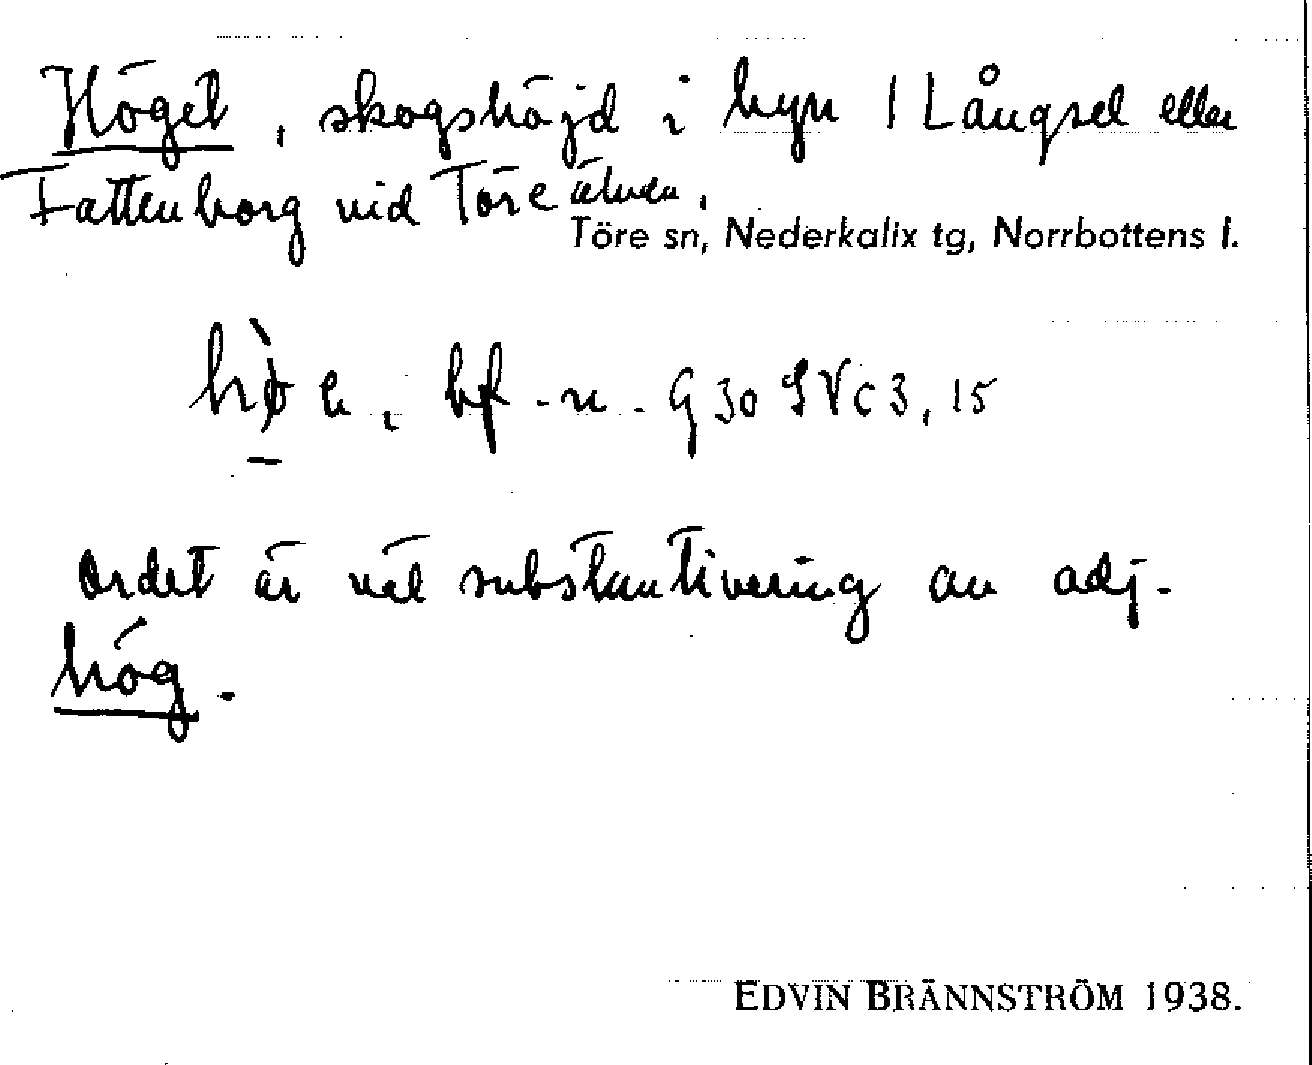 Höget, skogshöjd i byn Långsel eller
Fattenborg vid Töre älven.
Töre sn, Nederkalix tg, Norrbottens l.
bf. n. G 30 SV c 3, 15
Ordet är väl substantivering av adj.
hög.
EDVIN BRÄNNSTRÖM 1938.